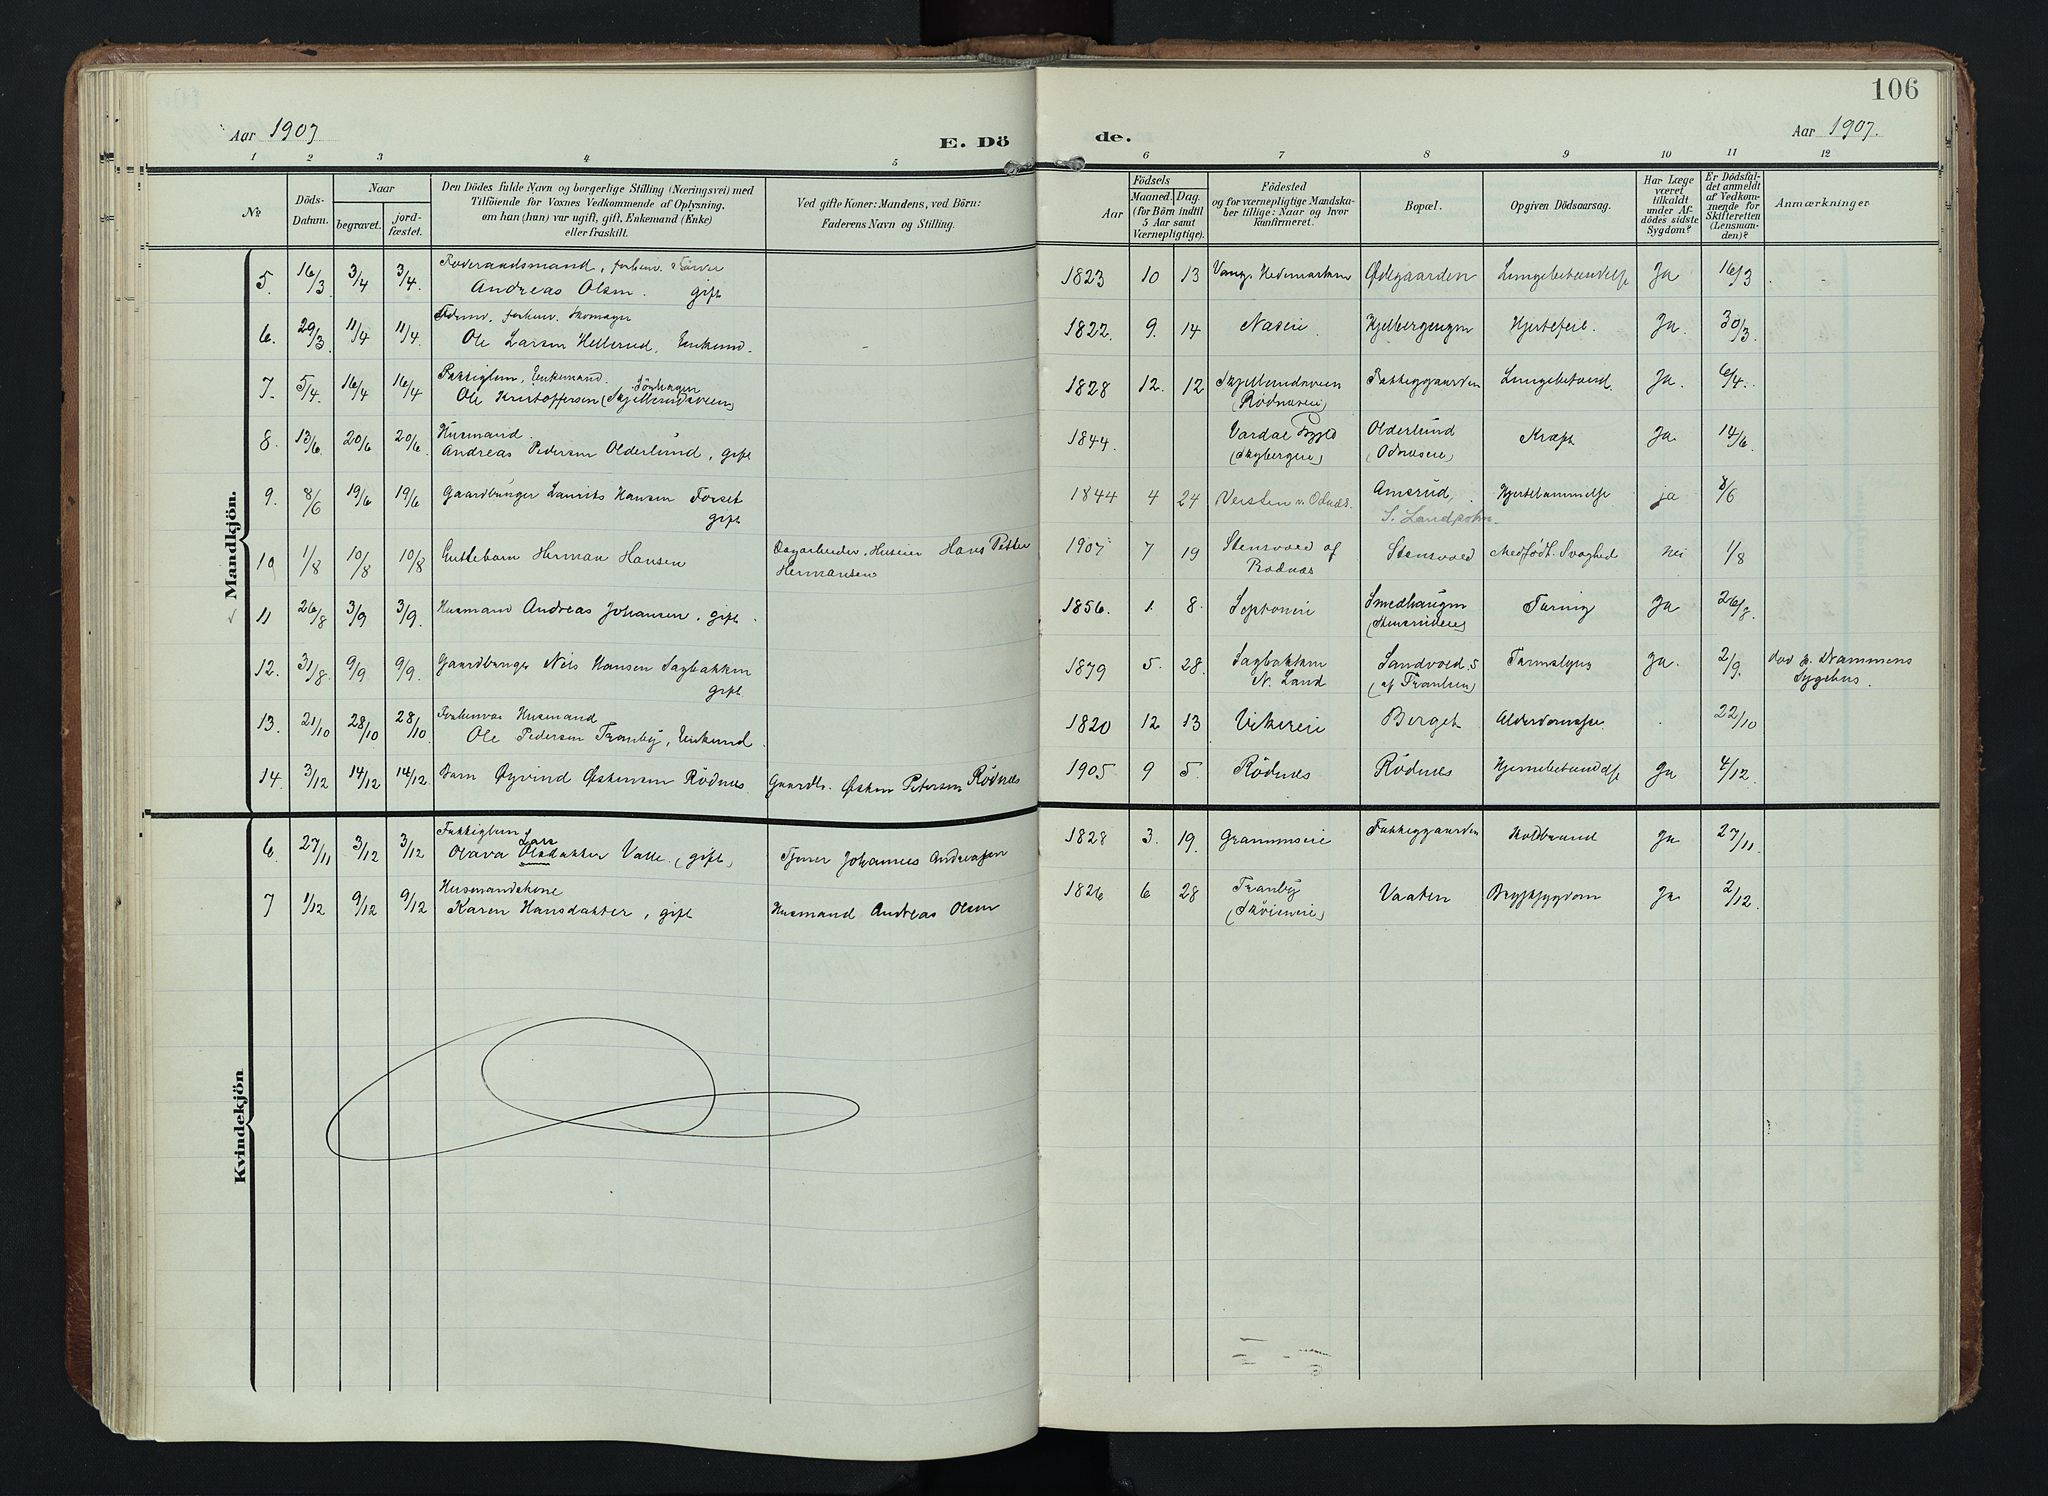 106
Aar 1907
E. Dö
de.
Aar 1907.
1 2 3 4 5 6 7 8 9 10 11 12
№
Döds-
Datum.
Naar
begravet.
jord-
fæstet.
Den Dödes fulde Navn og borgerlige Stilling (Næringsvei) med
Tilföiende for Voxnes Vedkommende af Oplysning,
om han (hun) var ugift, gift, Enkemand (Enke)
eller fraskilt.
Ved gifte Koner: Mandens, ved Börn:
Faderens Navn og Stilling.
Födsels
Aar
Maaned.
Dag.
(for Börn indtil
5 Aar samt
Værnepligtige).
Födested
og for værnepligtige Mandska-
ber tillige: Naar og hvor
konfirmeret.
Bopæl.
Opgiven Dödsaarsag.
Har Læge
været
tilkaldt
under Af-
dödes sidste
Sygdom?
Er Dödsfal-
det anmeldt
af Vedkom-
mende for
Skifteretten
(Lensman-
den)?
Anmærkninger
Mandkjön.
5. 16/3 3/4 3/4. Föderaadsmand, forhenv.
Andreas Olsen. gift
1823 10 13 Vang, Hedemarken Ødegaarden Lungebetændelse Ja 16/3
6. 29/3 11/4 11/4. forhenv. Skomager
Ole Larsen Hellerud, Enkemd.
1822. 9. 14 Næseie. Kjelbergengen Hjertefeil. Ja. 30/3
7. 5/4. 16/4 16/4 Fattiglem, Enkemand.
Ole Kristoffersen (Skjellerudsveen)
1828 12. 12 Skjellerudsveen Fattiggaarden Lungebetænd. Ja. 6/4.
(Rödnæseie)
8. 13/6. 20/6 20/6. Husmand.
Andreas Pedersen Olderlund, gift
1844. Vardal Bygd Olderlund Kræft Ja 14/6
(Skybergeie) (Odnæseie)
9. 8/6 19/6 19/6 Gaardbruger Laurits Hansen Forset
gift
1844 4 24 Versten v. Odnæs. Amsrud, Hjertelammelse ja 8/6
S. Landsohn.
10 1/8 10/8 10/8 Guttebarn Herman Hansen Dagarbeider, Huseier Hans Petter
Hermansen
1907 7 19 Stensvold af Stensvold Medfödt Svaghed nei 1/8
Rodnæs
11 26/8 3/9 3/9. Husmand Andreas Johansen, gift.
1856. 1. 8. Smedhaugen Tæring Ja 26/8.
12. 31/8. 9/9 9/9. Gaardbruger Nils Hansen Sagbakken
gift.
1879 5. 28. Sagbakken Sandvold, S Tarmslyng Ja. 2/9. död p. Drammens
N. Land (af Tranlien) Sygehus.
13. 21/10 28/10 28/10. Forhenvær Husmand
Ole Pedersen Tranby, Enkemd.
1820 12 13 Vikeeie Berget Alderdomssl. 22/10
14. 3/12 14/12 14/12 Barn Øyvind Østensen Rödnes. Gaardbr. Østen Petersen Rödnes
1905 9 5. Rödnes Rödnes Hjernebetændelse Ja 4/12.
Kvindekjön
6. 27/11 3/12 3/12 Fattiglem
Lars
Olava Olsdatter Valle. (gift) Tjener Johannes Andreassen
1828 3. 19. Grammseie Fattiggaarden Koldbrand Ja 27/11.
7 1/12 9/12 9/12 Husmandskone
Karen Hansdatter, gift Husmand Andreas Olsen
1826 6 28 Tranby Vaaten Brystsygdom Ja 2/12.
(Sköieneie)